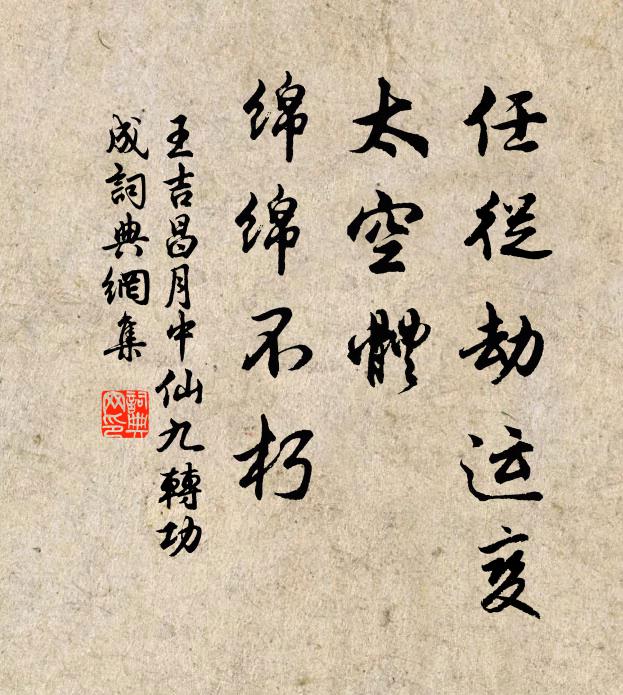 任從劫运变
太空體
绵绵不朽
王吉昌月中仙九轉功
成詞典網集
詞典
网印